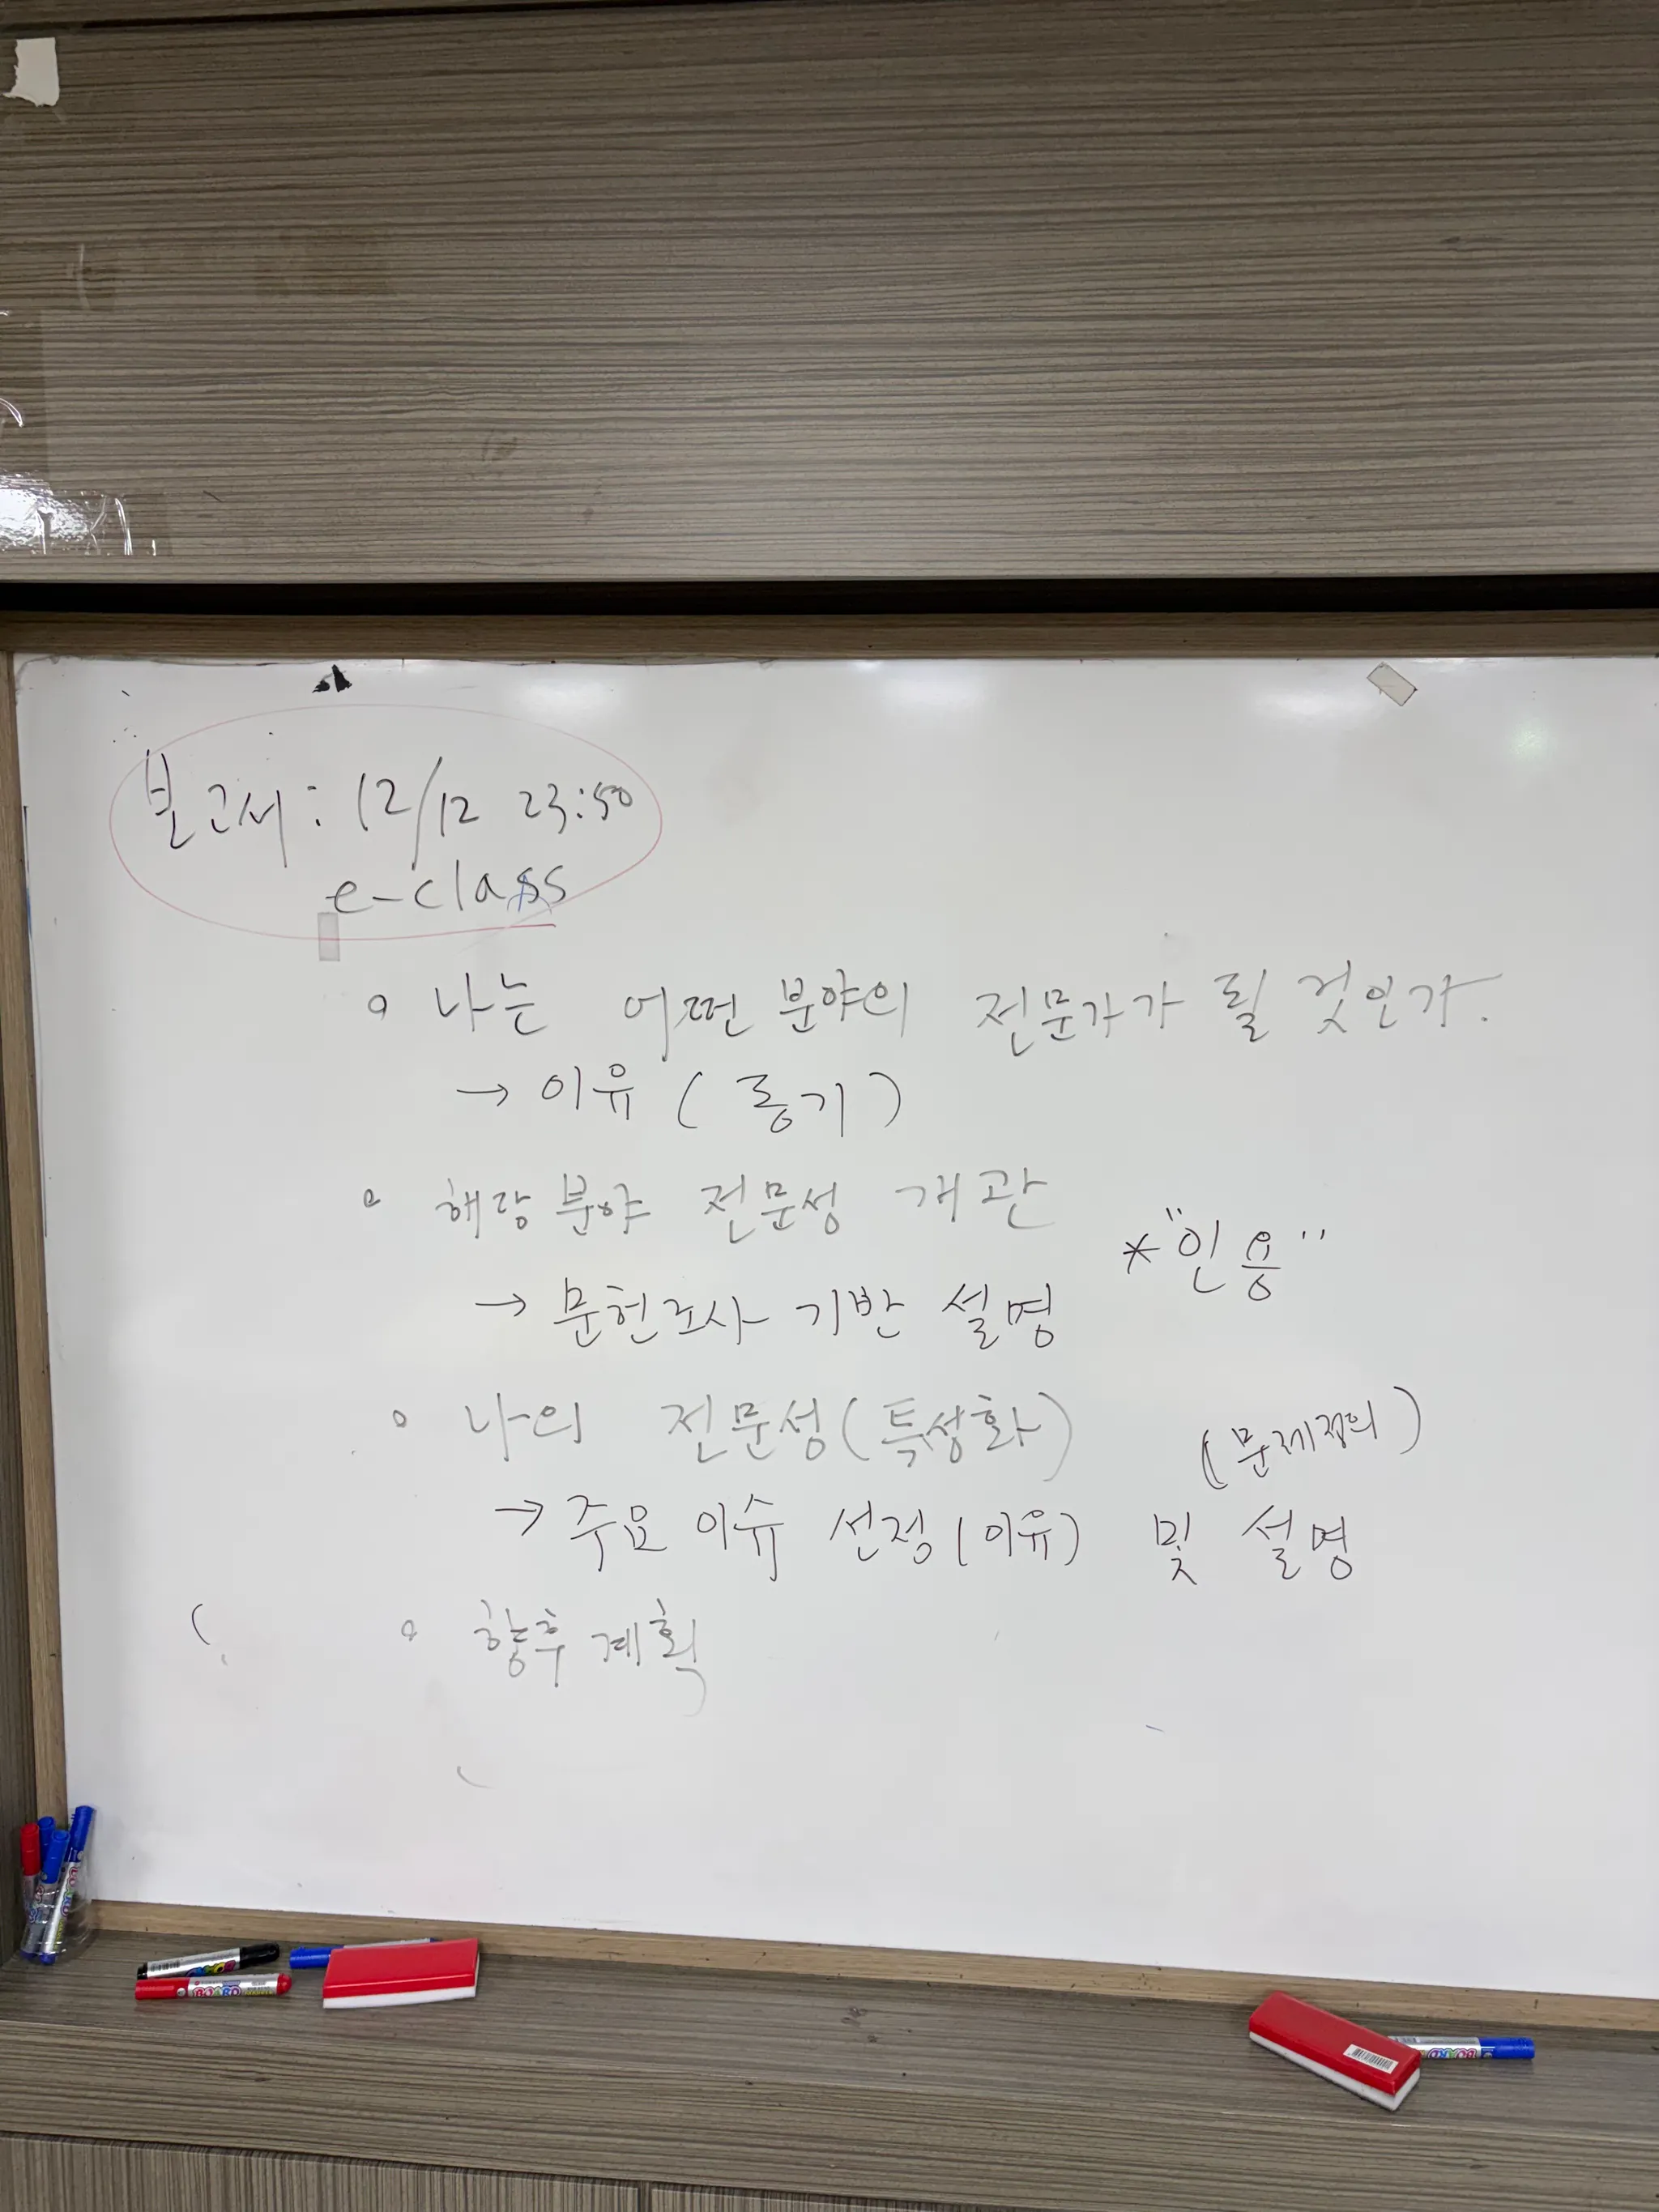 보고서: 12/12 23:50
e-class
◦ 나는 어떤 분야의 전문가가 될 것인가.
→ 이유 (동기)
◦ 해당 분야 전문성 개관
* "인용"
→ 문헌조사 기반 설명
◦ 나의 전문성(특성화)
(문제정의)
→ 주요 이슈 선정(이유) 및 설명
◦ 향후 계획
BOARD
BOARD